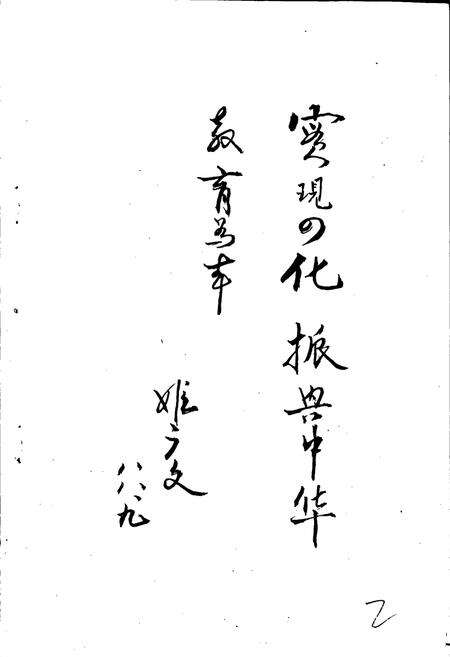 實現四化 振興中华
教育為本
广文
八八、九